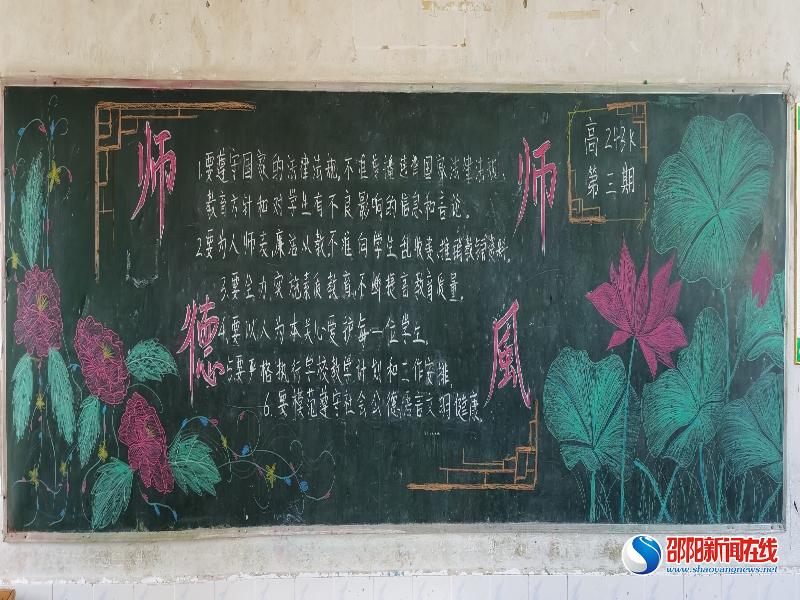 师德
师風
高248K
第三期
1.要遵守国家的法律法规,不准传播违背国家法律法规、
教育方针和对学生有不良影响的信息和言论。
2.要为人师表,廉洁从教不准向学生乱收费,推销教辅资料。
3.要全力实施素质教育,不断提高教育质量。
4.要以人为本关心爱护每一位学生。
5要严格执行学校教学计划和工作安排。
6.要模范遵守社会公德,语言文明健康
邵阳新闻在线
www.shaoyangnews.net